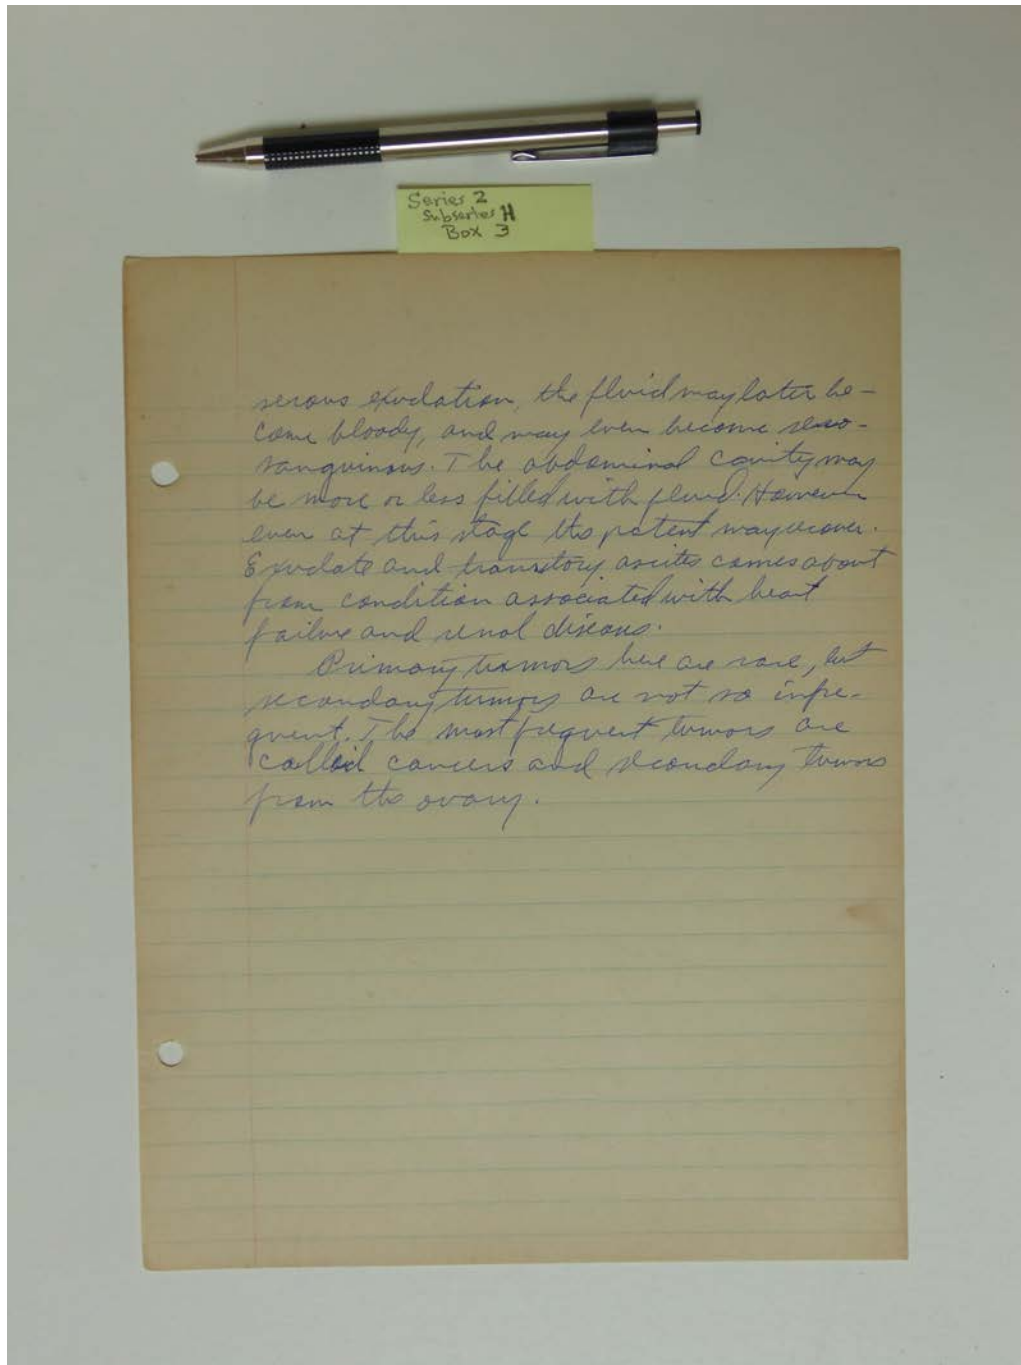 Series 2
Subseries H
Box 3
serous exudation, the fluid may later be-
come bloody, and may even become sero-
sanguinous. The abdominal cavity may
be more or less filled with fluid. However
even at this stage the patent may recover.
Exudate and transitory ascites comes about
from condition associated with heart
failure and renal disease.
Primary tumors here are rare, but
secondary tumors are not so infre-
quent. The most frequent tumors are
colloid cancers and secondary tumors
from the ovary.